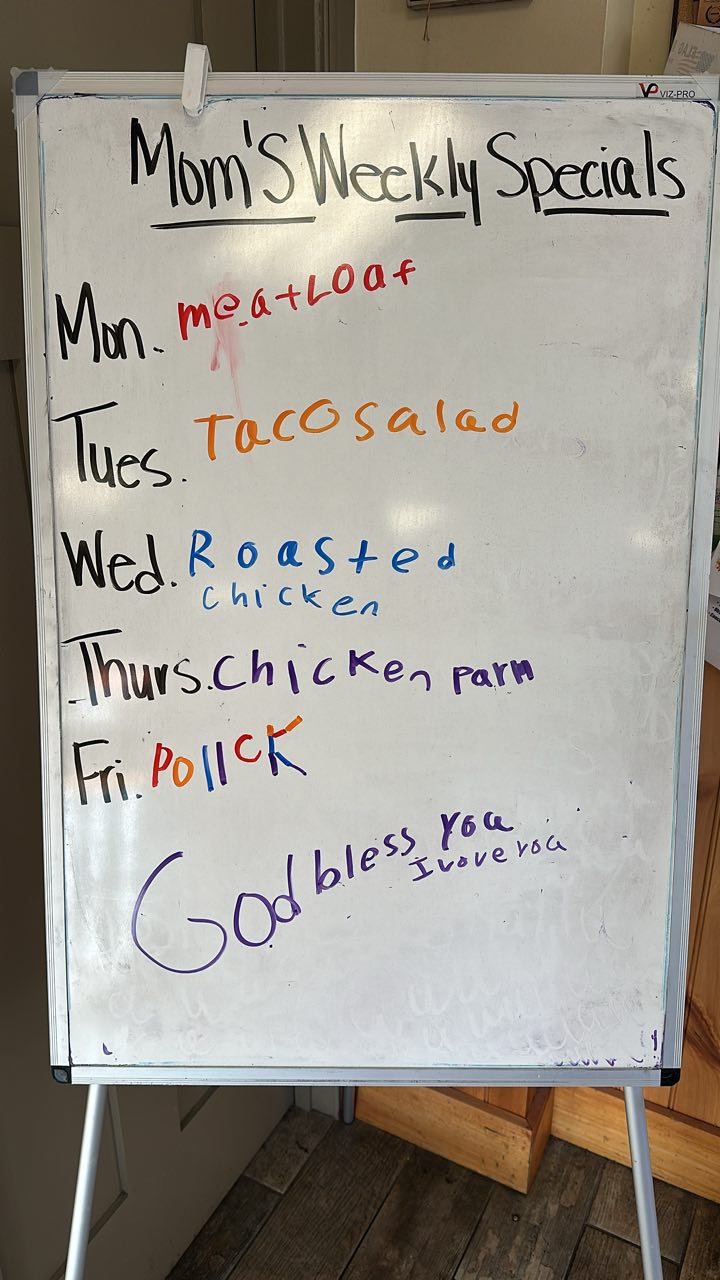 VP VIZ-PRO
Mom'S Weekly Specials
Mon. meatLoaf
Tues. Taco salad
Wed. Roasted
chicken
Thurs. Chicken parm
Fri. Pollck
God bless you
I love you